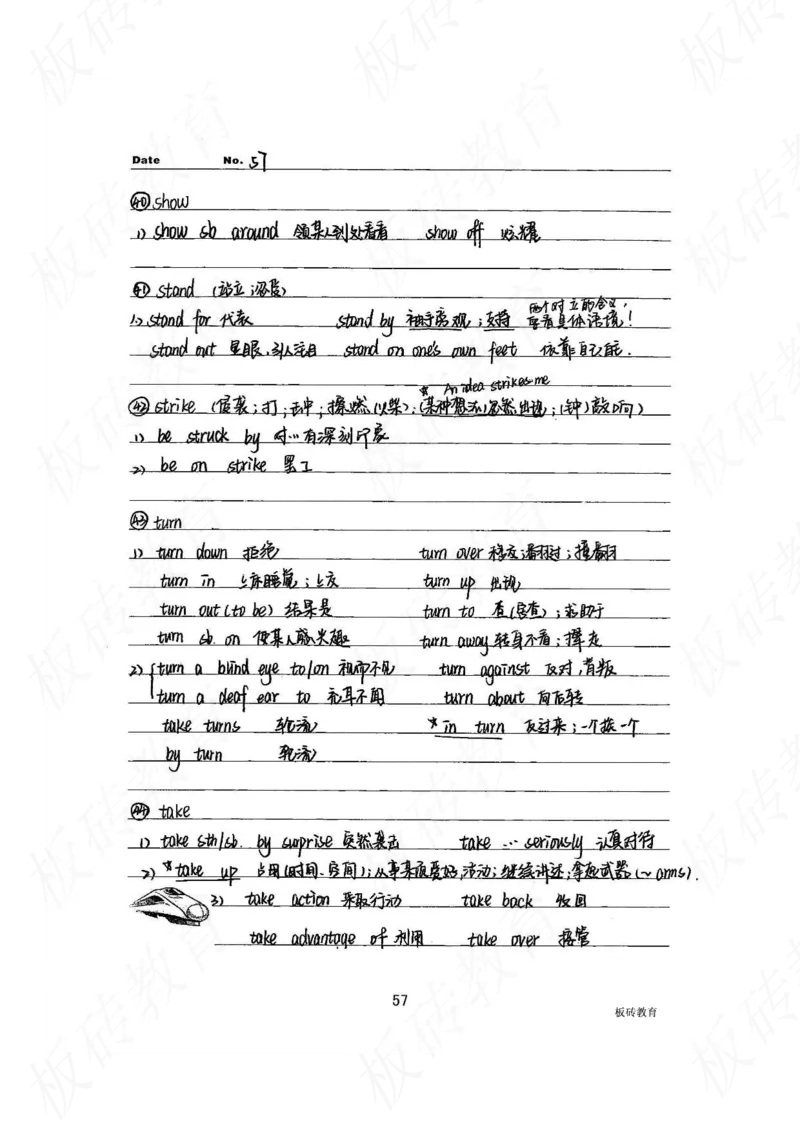 Date No. 57
㊵ show
1) show sb around 领某人到处看看 show off 炫耀
㊶ stand (站立;忍受)
两个对立的含义,
1) stand for 代表 stand by 袖手旁观;支持 要看具体语境!
stand out 显眼,引人注目 stand on one's own feet 依靠自己能.
* An idea strikes me
㊷ strike (侵袭;打;击中;擦燃(火柴);(某种想法)忽然出现;(钟)敲响)
1) be struck by 对…有深刻印象
2) be on strike 罢工
㊸ turn
1) turn down 拒绝 turn over 移交;翻身;撞翻
turn in 上床睡觉;上交 turn up 出现
turn out (to be) 结果是 turn to 查(字典);求助于
turn sb. on 使某人感兴趣 turn away 转身不看;撵走
2) turn a blind eye to/on 视而不见 turn against 反对,背叛
turn a deaf ear to 充耳不闻 turn about 向后转
take turns 轮流 * in turn 反过来;一个接一个
by turn 轮流
㊹ take
1) take sth/sb. by surprise 突然袭击 take … seriously 认真对待
2) * take up 占用(时间、空间);从事某项爱好,活动;继续讲述;拿起武器(~ arms).
3) take action 采取行动 take back 收回
take advantage of 利用 take over 接管
57
板砖教育